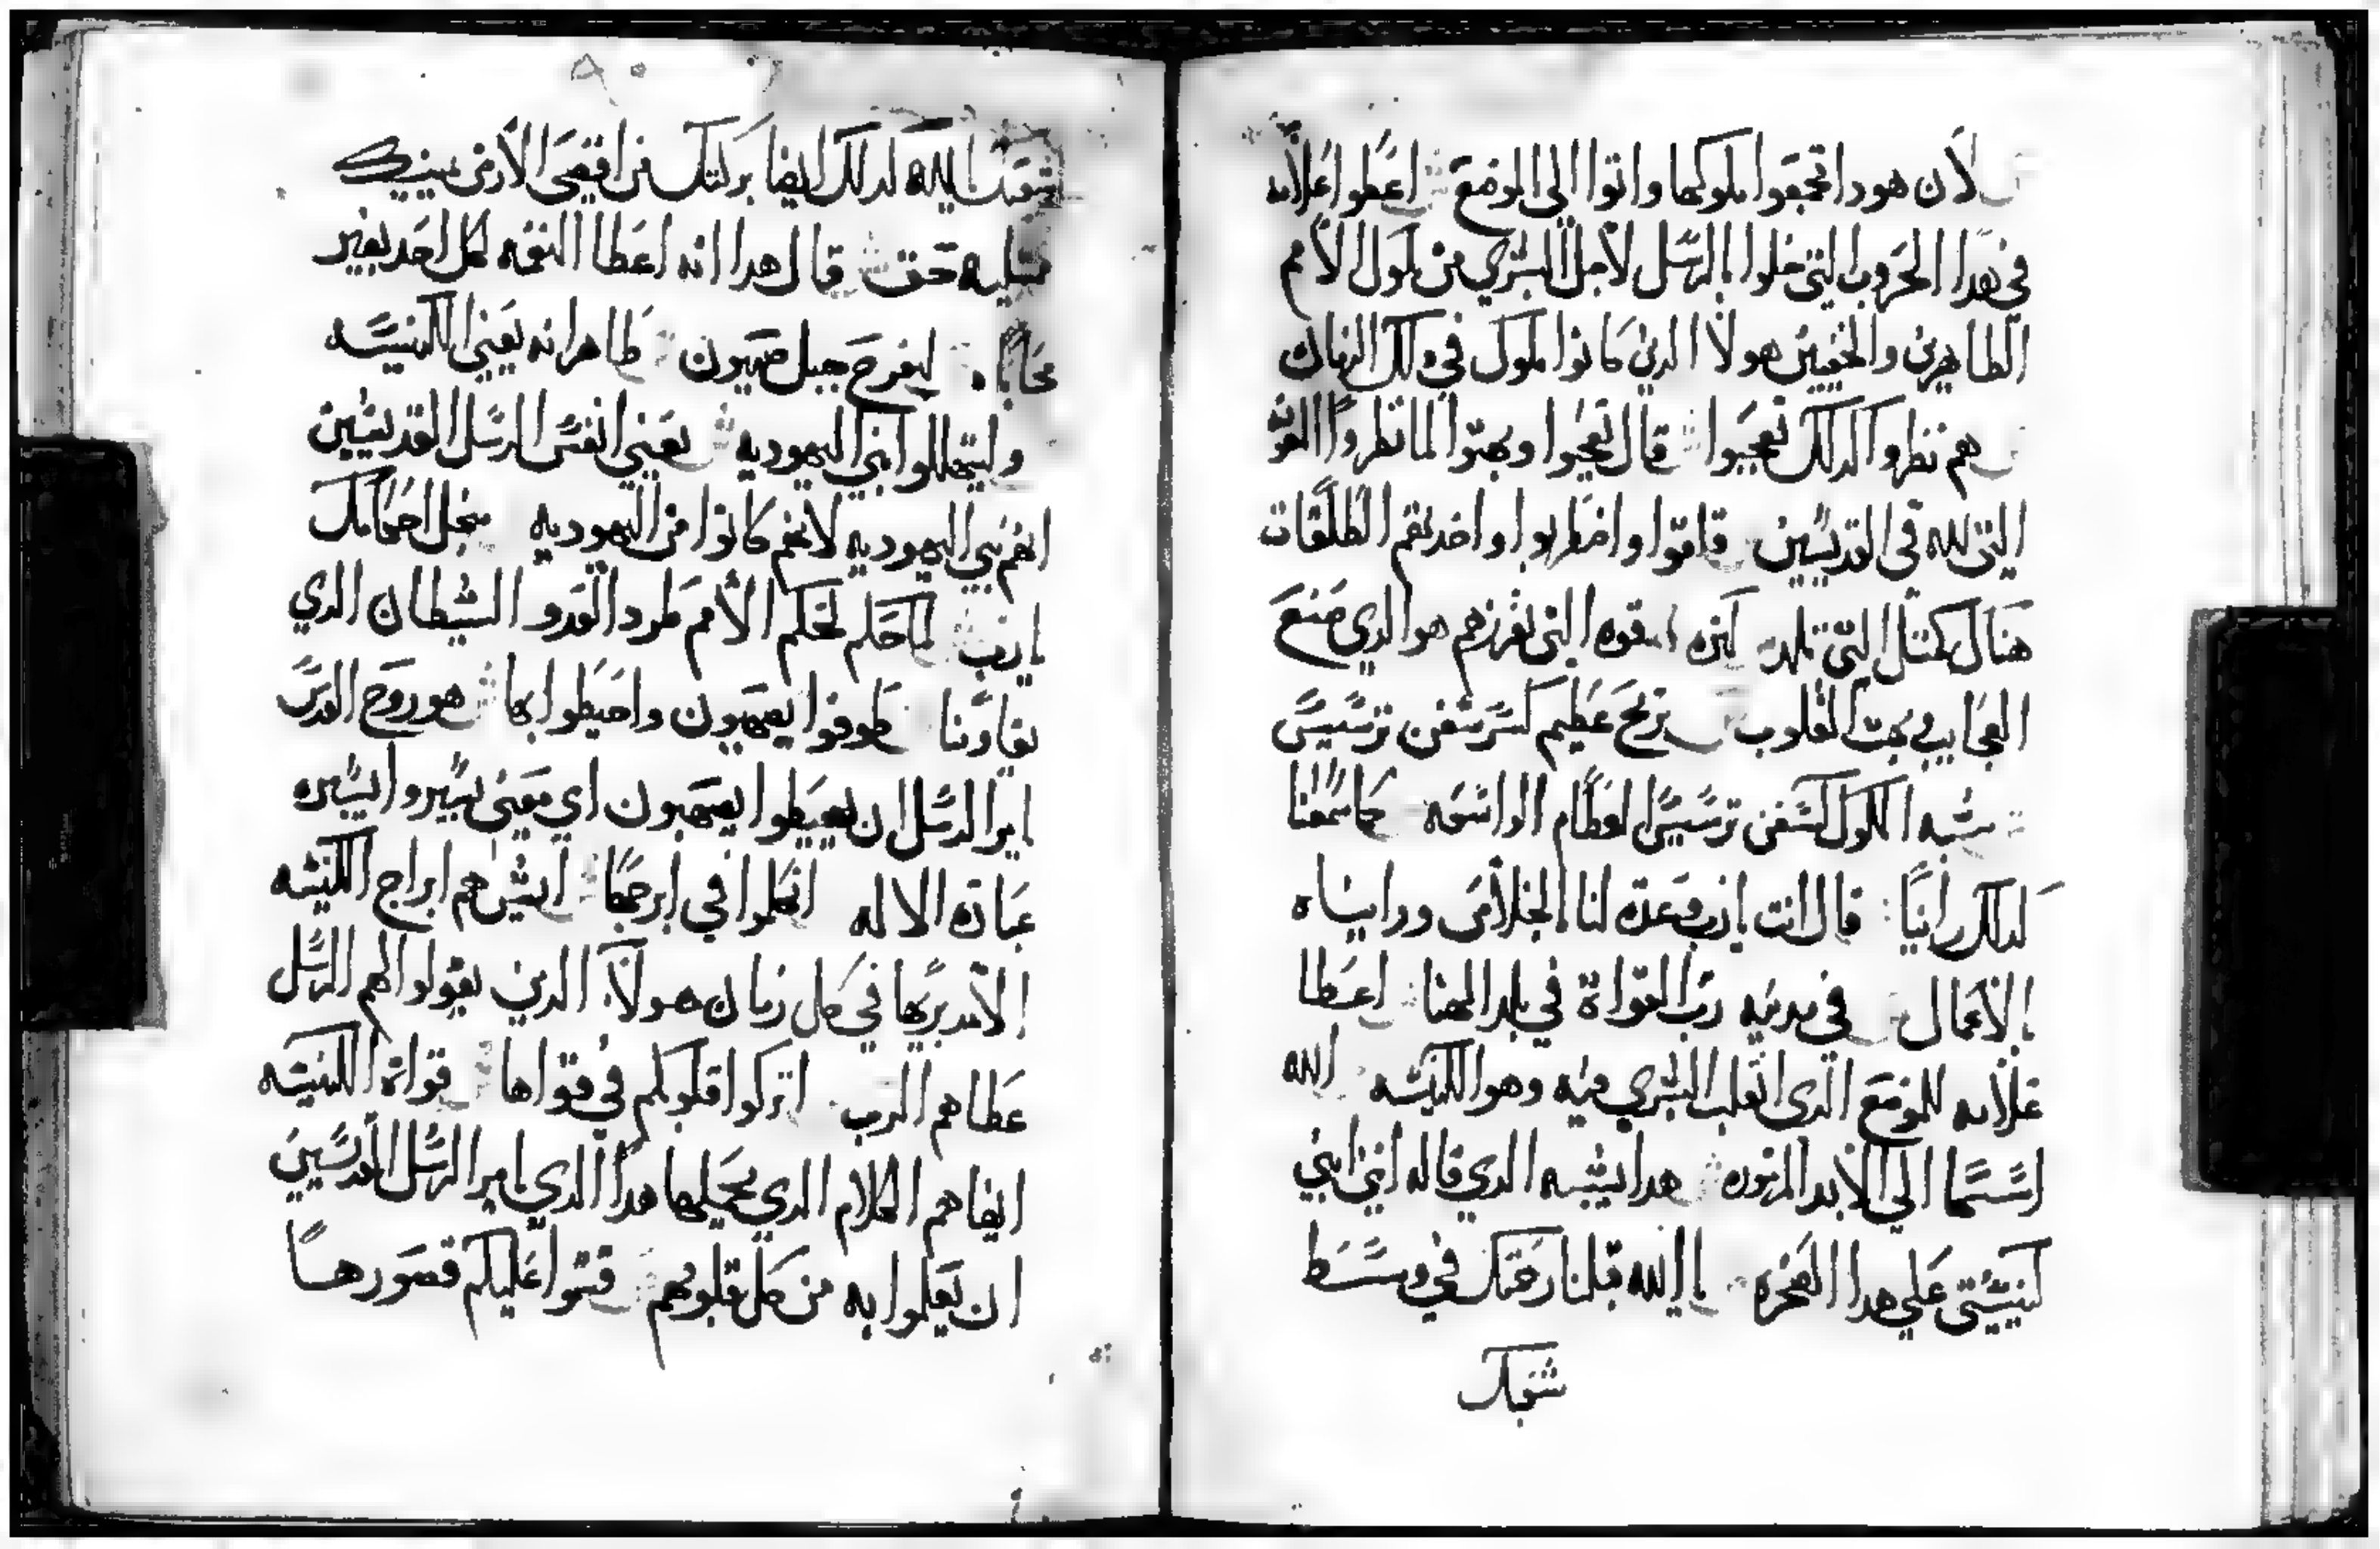 لان هودا تجمعوا ملوكها واتوا الي الموضع اعطوا علامه
في هدا الحروب التي حلوا بالرسل لاجل البشري من ملوك الامم
الطاهرين والخفيين هولا الدين كانوا ملوك في دلك الزمان
هم نظروا كدلك تعجبوا قال تعجبوا وبهتوا لما نظروا القوه
التي لله في القديسين قاموا واضطربوا واخدتهم الطلقات
هناك كمتل التي تلد لنره قوه التي تفرزهم هو الدي صنع
العجايب في القلوب بريح عظيم كسر سفن ترسيس
شبه الملوك لسفن ترسيس العظام الواسعه كما سمعنا
كدلك راينا قال انت يارب وعدة لنا الخلاص وراينا
الاعمال في مدينه رب القواة في بلد الهنا اعطا
علامه للموضع الدي انقلب البشري فيه وهو الكنيسه الله
اسسها الي الابد المزمور هدا يشبه الدي قاله انني ابني
كنيستي علي هدا الصخره يا الله قبلنا رحمتك في وسط
شعبك
شعبك يا الله كدلك ايضا بركتك من اقصي الارض يمينك
ممتليه حق قال هدا انه اعطا النعمه لكل احد بغير
محاباه ليفرح جبل صهيون ظاهر انه يعني الكنيسه
وليتهللوا ابني اليهوديه يعني انفس الرسل القديسين
انهم بني اليهوديه لانهم كانوا من اليهوديه من اجل احكامك
يارب لما حكم لحكم الامم طرد العدو الشيطان الدي
يقاومنا طوفوا بصهيون واحيطوا بها هو روح القدس
يامر الرسل ان يحيطوا بصهيون اي معني يسيروا بسيره
عبادة الاله اتكلوا في ابرجها ايش هم ابراج الكنيسه
الا مدبريها في كل زمان هولا الدين يقولوا لهم الرسل
عطاهم الرب اتركوا قلوبكم في قواها قواة الكنيسه
ايضا هم الكلام الدي يحييها هدا الدي يامر الرسل القديسين
ان يعملوا به من كل قلوبهم قسموا عليكم قصورها